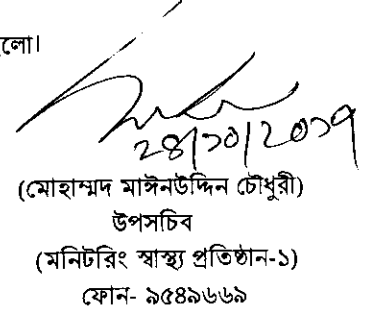 লো।
২৪/১০/২০১৭
(মোহাম্মদ মাঈনউদ্দিন চৌধুরী)
উপসচিব
(মনিটরিং স্বাস্থ্য প্রতিষ্ঠান-১)
ফোন- ৯৫৪৯৬৬৯